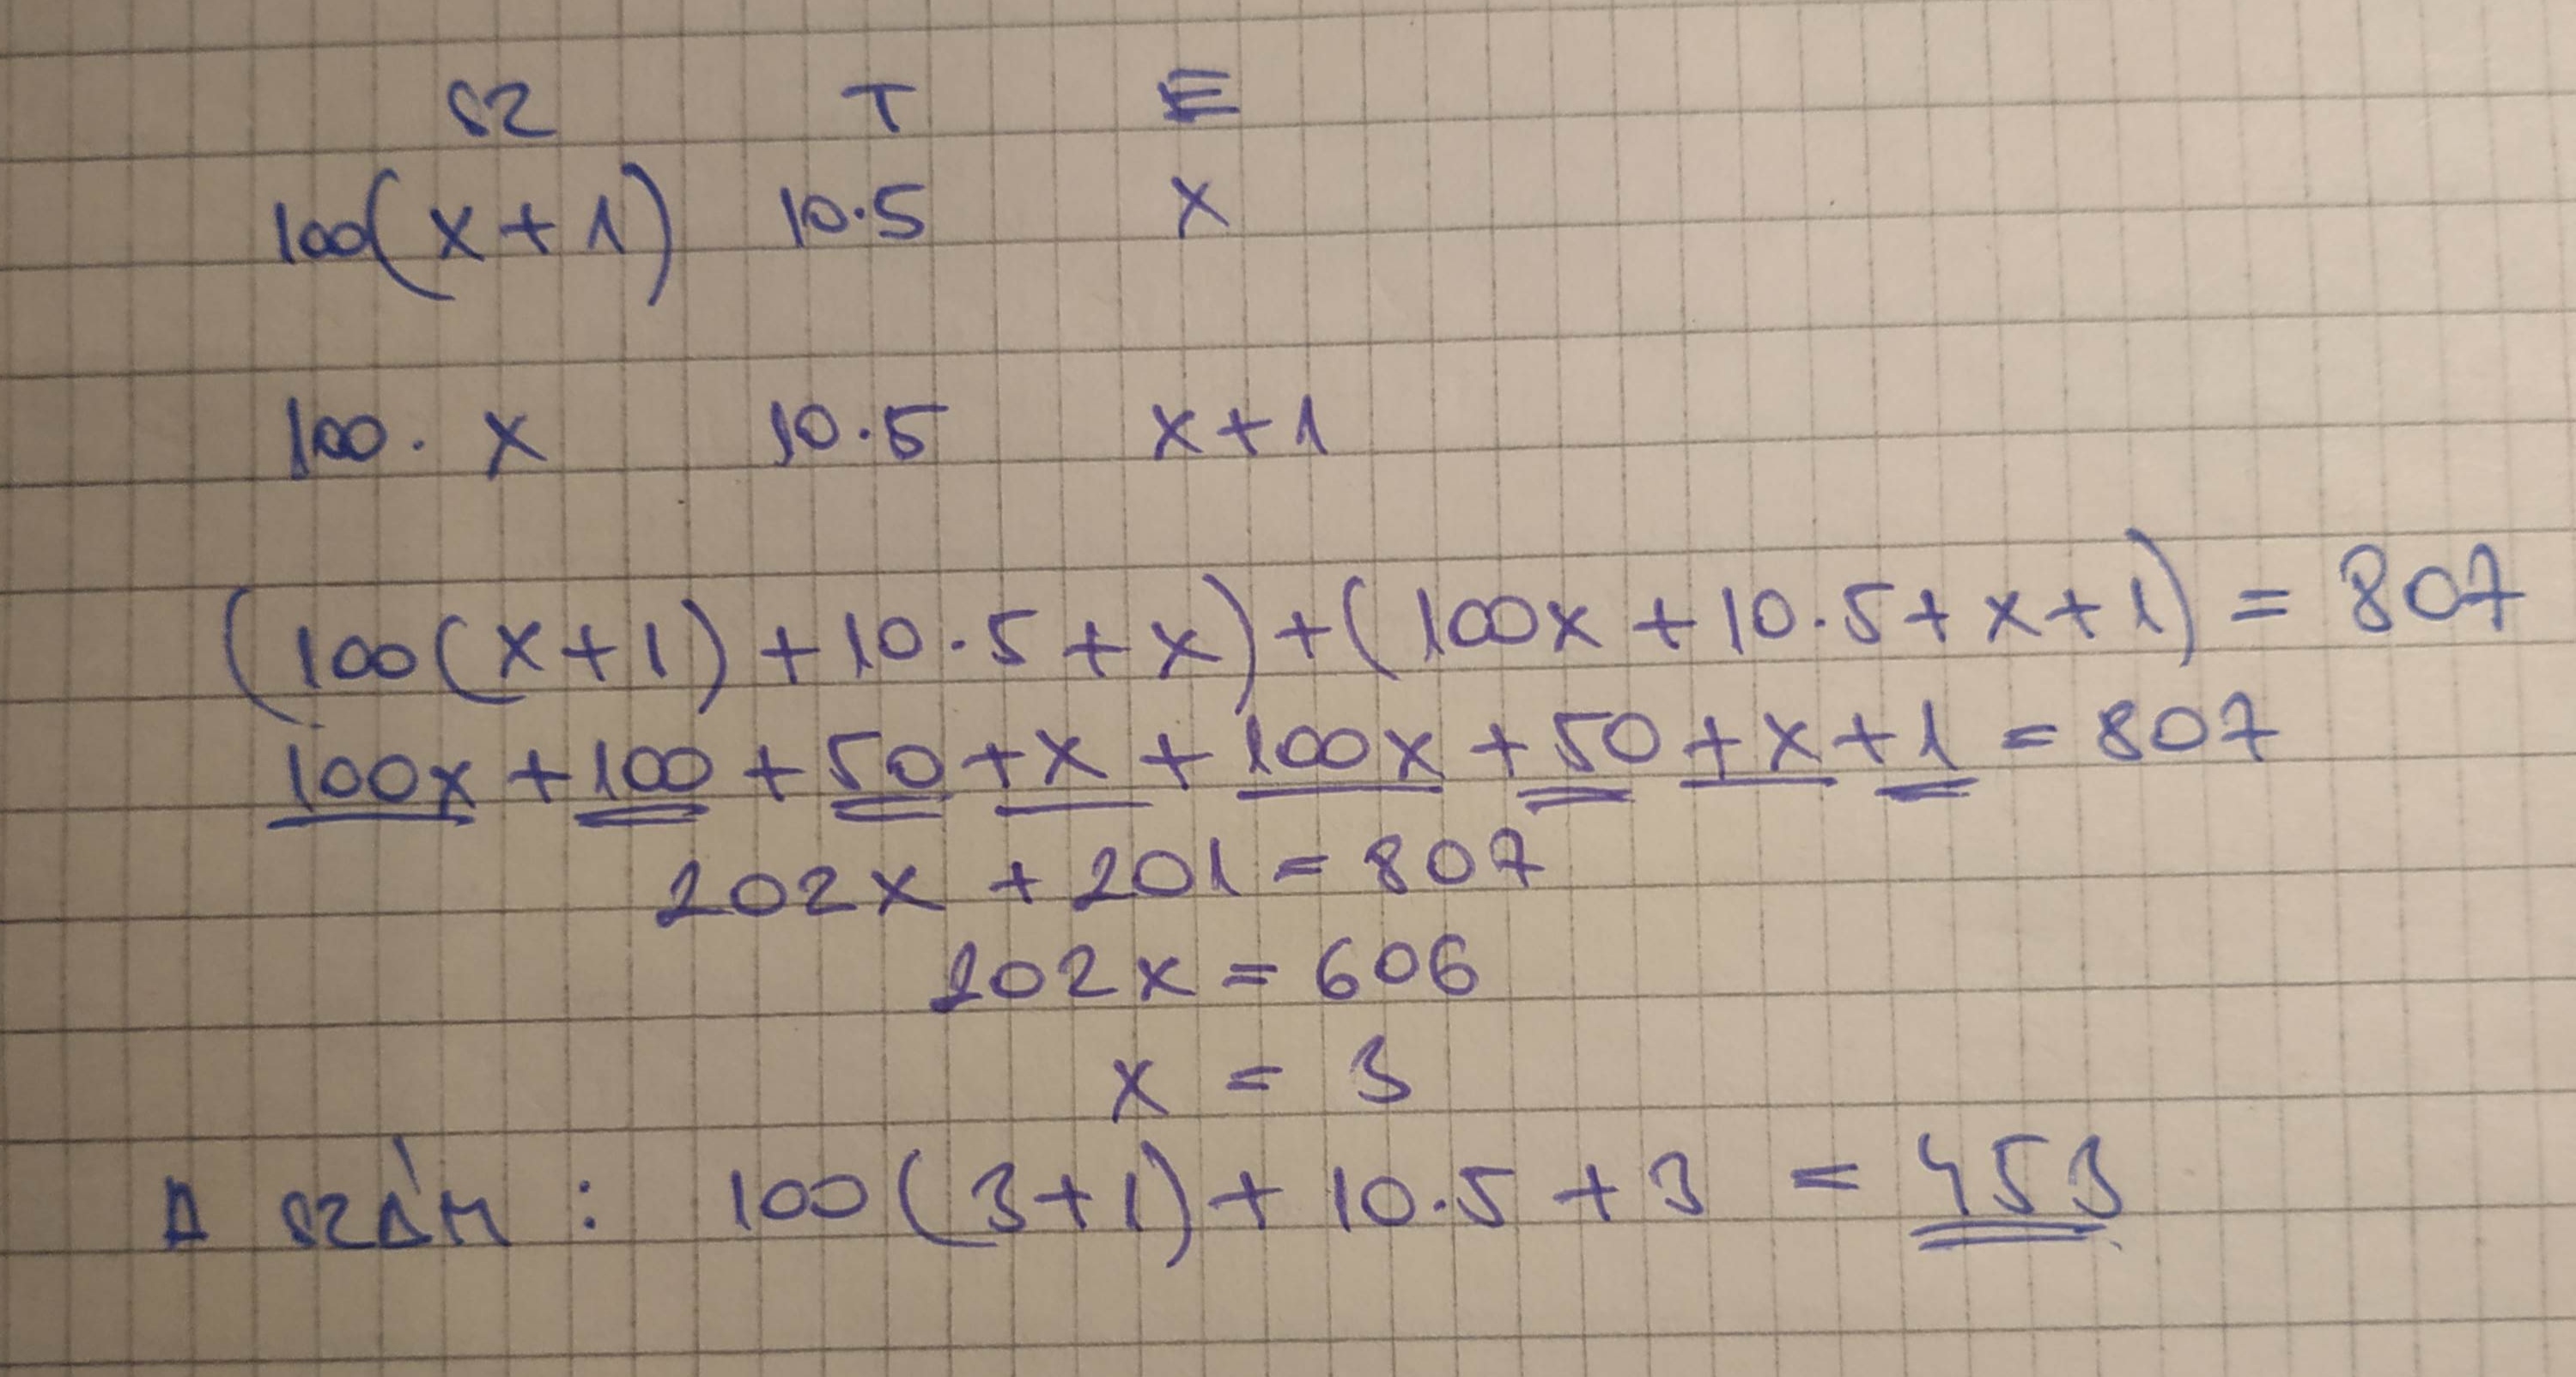 SZ T E
100(x+1) 10·5 x
100· x 10·5 x+1
(100(x+1)+10·5+x)+(100x+10·5+x+1)=807
100x+100+50+x+100x+50+x+1=807
202x+201=807
202x=606
x=3
A SZÁM: 100(3+1)+10·5+3=453